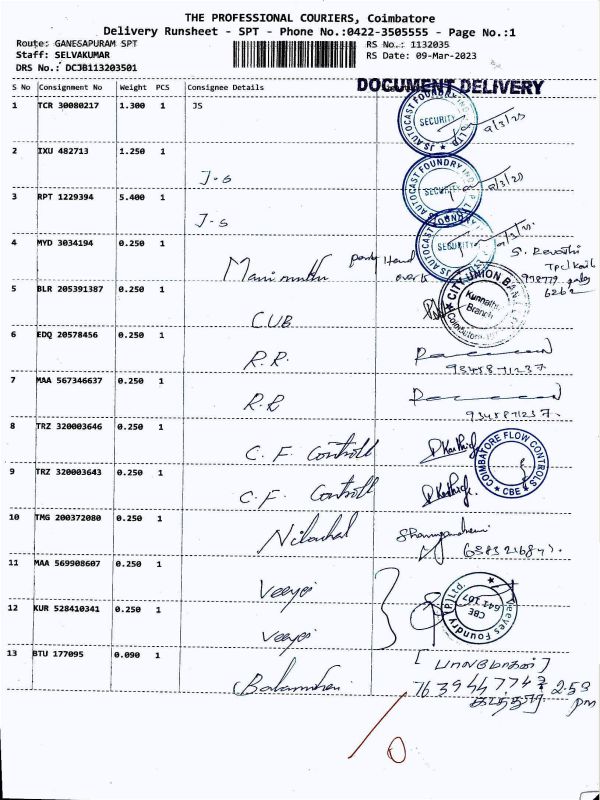 THE PROFESSIONAL COURIERS, Coimbatore
Delivery Runsheet - SPT - Phone No.:0422-3505555 - Page No.:1
Route: GANESAPURAM SPT
RS No.: 1132035
Staff: SELVAKUMAR
RS Date: 09-Mar-2023
DRS No.: DCJB113203501
DOCUMENT DELIVERY
S No Consignment No Weight PCS Consignee Details
1 TCR 30080217 1.300 1 JS
JS AUTOCAST FOUNDRY IND SECURITY 9/3/23
2 IXU 482713 1.250 1
J-S
JS AUTOCAST FOUNDRY IND SECURITY 9/3/23
3 RPT 1229394 5.400 1
J-S
JS AUTOCAST FOUNDRY IND SECURITY
4 MYD 3034194 0.250 1
Hand over
S. Revathi
5 BLR 205391387 0.250 1
CUB
CITY UNION BANK Kunnathur Branch Coimbatore
6 EDQ 20578456 0.250 1
R.R.
9345871237
7 MAA 567346637 0.250 1
R.R
9345871237.
8 TRZ 320003646 0.250 1
C. F Controll
COIMBATORE FLOW CONTROLS CBE
9 TRZ 320003643 0.250 1
C. F. Controll
10 TMG 200372080 0.250 1
11 MAA 569908607 0.250 1
Veeyes
12 KUR 528410341 0.250 1
Veeyes
Veeyes Foundry (P) Ltd. CBE 641 107
13 BTU 177095 0.090 1
7639447747 2.53 pm